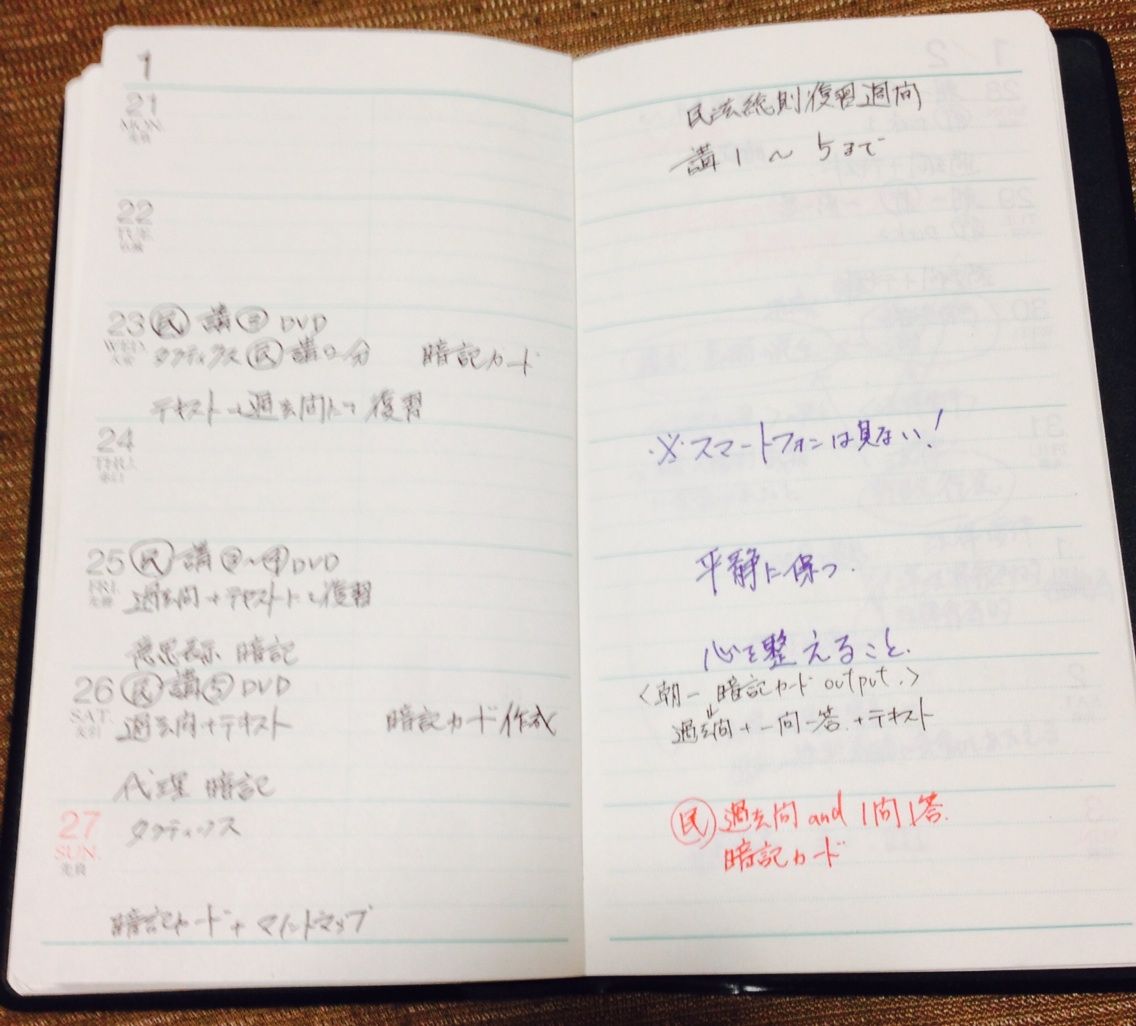 1
21
MON.
先負
民法総則復習週間
講1〜5まで
22
TUE.
仏滅
23 民 講③ DVD
WED.
大安
タクティクス 民 講2分 暗記カード
テキスト→過去問にて復習
24
THU.
赤口
※スマートフォンは見ない!
25 民 講③〜④DVD
FRI.
先勝
過去問+テキストにて復習
平静に保つ.
意思表示 暗記
心を整えること.
26 民 講⑤ DVD
SAT.
友引
過去問+テキスト 暗記カード作成
〈朝一暗記カード output.〉
↓
過去問+一問一答.+テキスト
代理 暗記
27
SUN.
先負
タクティクス
民 過去問 and 1問1答.
暗記カード
暗記カード+マインドマップ